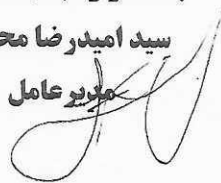 سید امیدرضا
مدیرعامل